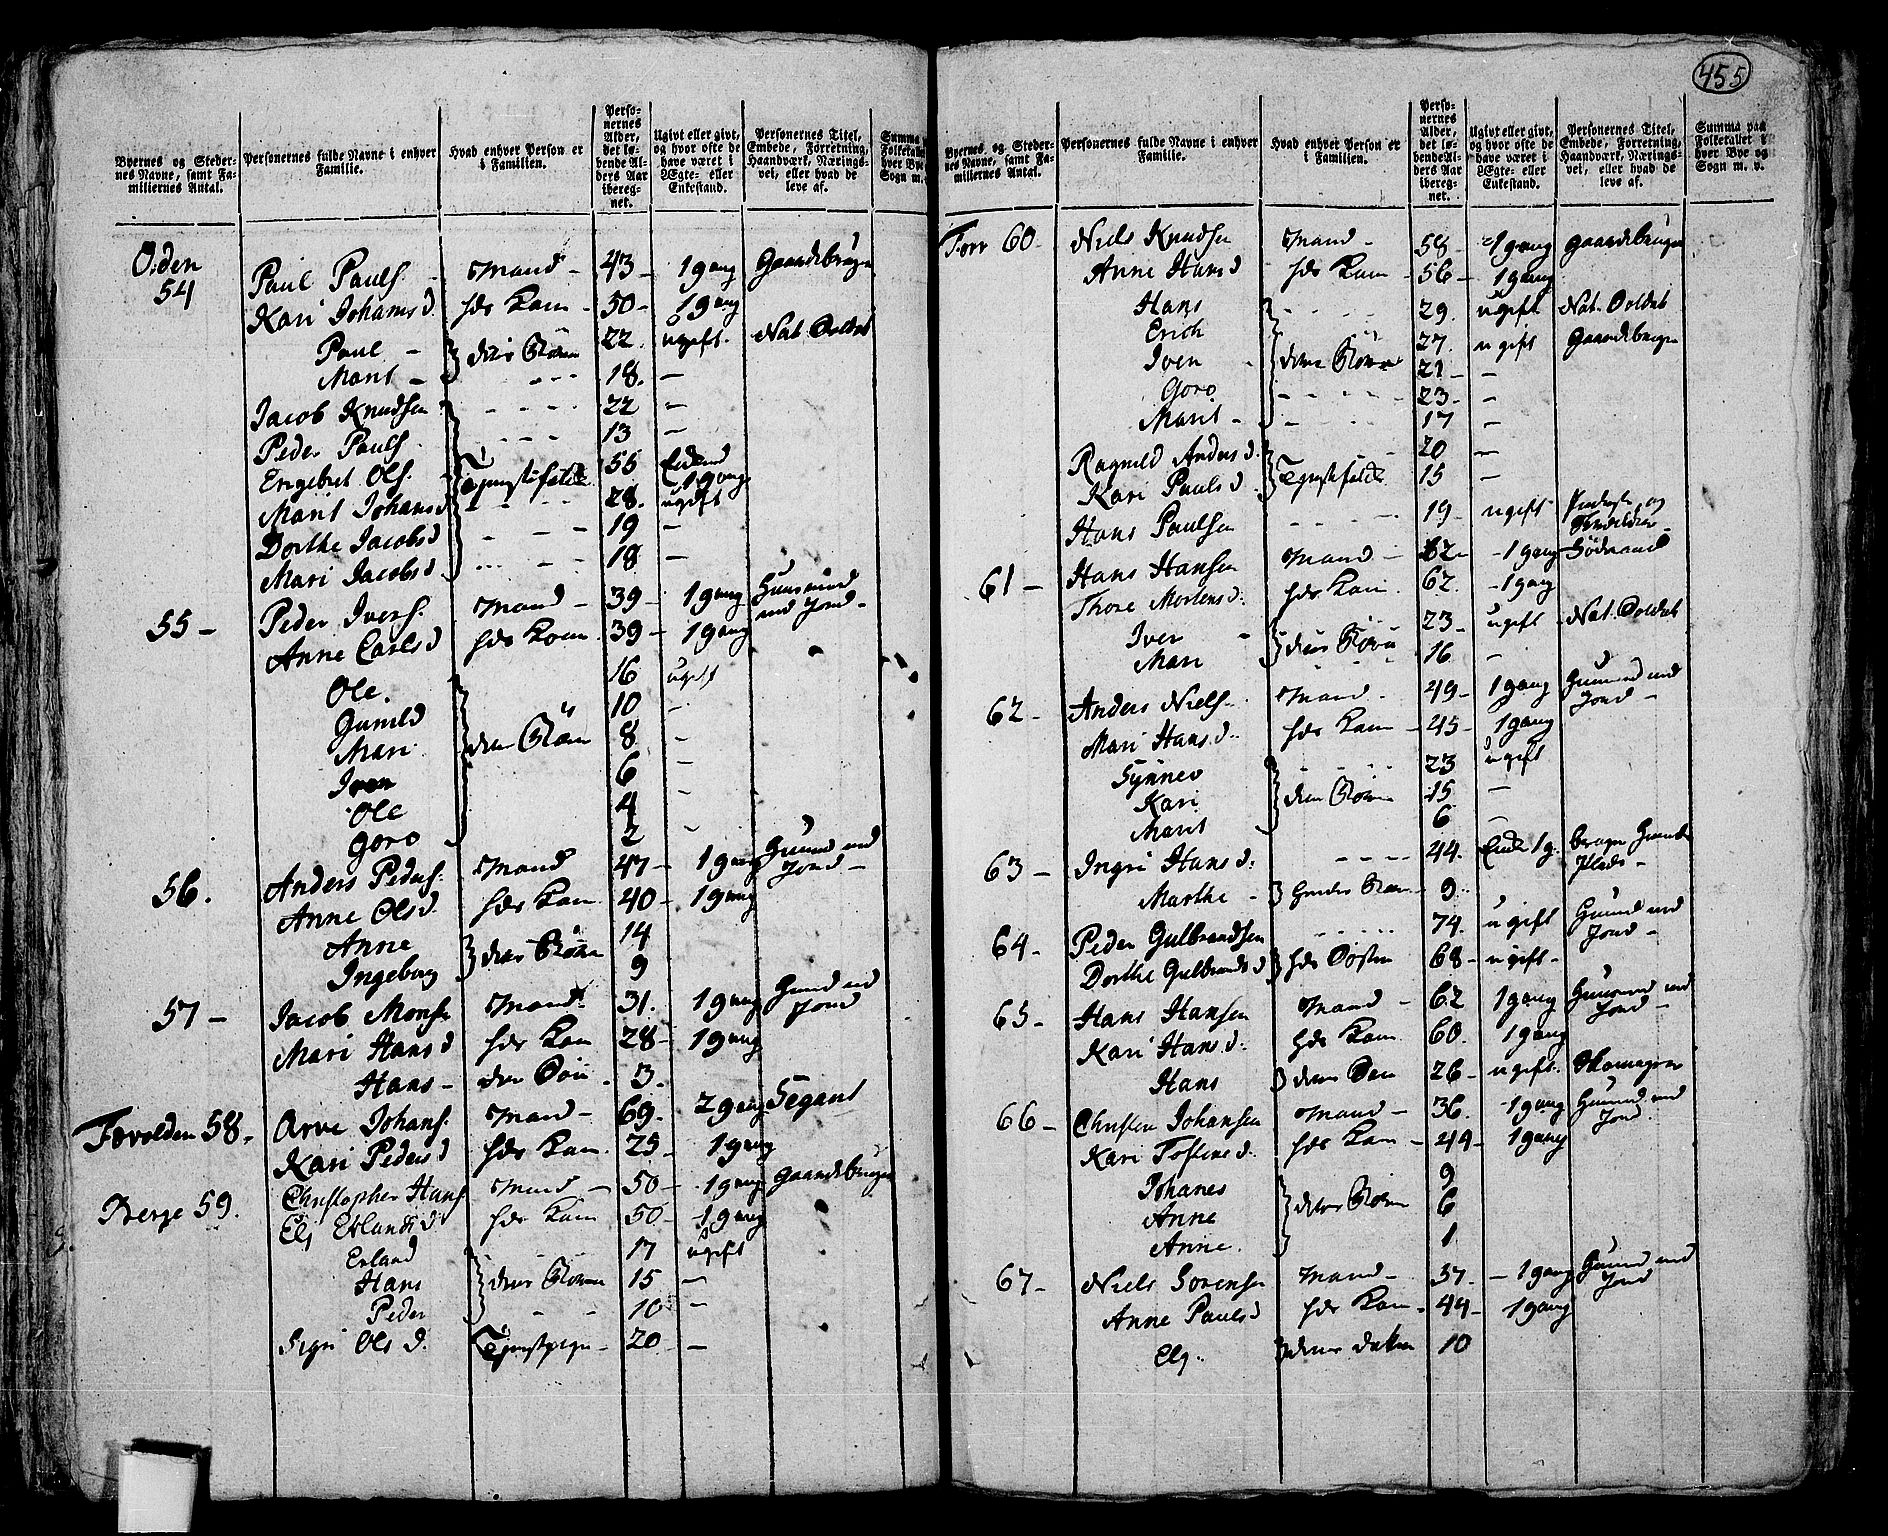 455
Byernes og Stedernes Navne, samt Familiernes Antal. | Personernes fulde Navne i enhver Familie. | Hvad enhver Person er i Familien. | Personernes Alder, det løbende Alders Aar iberegnet. | Ugivt eller givt, og hvor ofte de have været i Ægte- eller Enkestand. | Personernes Titel, Embede, Forretning, Haandværk, Næringsvei, eller hvad de leve af. | Summa Folketallet hver Bye Sogn m.
Oiden 54 Paul Pauls. Mand - 43 - 1 gang Gaardebruger
Kari Johansd. hds Kone - 50 - 1 gang
Paul - 22 ugift. Nat. Soldat
Marit - 18. -
Jacob Knudsen 22 -
Peder Pauls. 13 -
Engebret Ols. Tjenstefolk 55 1 gang
Marit Johansd 28. ugift
Dorthe Jacobsd 19 -
Mari Jacobsd 18 -
55 - Peder Ivers. Mand - 39 - 1 gang Huusmand med Jord -
Anne Carlsd hds Kone 39 - 1 gang
Ole. 16 ugift
Gunild 10 -
Mari 8 -
Iver 6 -
Ole 4 -
Goro 2 -
56. Anders Peders. Mand 47 - 1 gang Huusmd med Jord -
Anne Olsd. hds Kone 40 - 1 gang
Anne 14
Ingeborg 9
57 - Jacob Monsn Mand 31. 1 gang Huusmd med Jord
Mari Hansd hds Kone 28 - 1 gang
Hans - deres Søn 3.
58. Arve Johans. Mand - 69. 2 gang Legant
Kari Pedersd hds Kone 25. 1 gang
Berge 59. Christopher Hans. Mand - 50 - 1 gang Gaardebruger
Elj Erlandsd. hds Kone 50 - 1 gang
Erland 17 ugift
Hans 15 -
Peder 10 -
Sigri Ols d. Tjenstpige - 20 - -
Byernes og Stedernes Navne, samt Familiernes Antal. | Personernes fulde Navne i enhver Familie. | Hvad enhver Person er i Familien. | Personernes Alder, det løbende Alders Aar iberegnet. | Ugivt eller givt, og hvor ofte de have været i Ægte- eller Enkestand. | Personernes Titel, Embede, Forretning, Haandværk, Næringsvei, eller hvad de leve af. | Summa paa Folketallet i hver Bye og Sogn m. v.
60 - Niels Knudsen Mand - 58 - 1 gang Gaardebruger
Anne Hansd hds Kone - 56 - 1 gang
Hans 29. ugift Nat. Soldat
Erich 27. ugift Gaardebruger
Iver 21 -
Goro 23 -
Marit - 17 -
Ragnild Andersd. 20 -
Kari Paulsd. Tjenstefolk 15 -
Hans Paulsen 19 - ugift
61 - Hans Hansen Mand - 62 - 1 gang
Thore Mortensd. hds Kone. 62. - 1 gang
Iver - 23 - ugift - Nat. Soldat
Mari 16 -
62 - Anders Niels. Mand - 49 - 1 gang Huusmd med Jord -
Mari Hansd. hds Kone - 45 - 1 gang
Synnev 23 ugift
Kari 15 -
Marit 6 -
63 - Ingri Hansd. 44. Enke 1 g. Pladds -
Marthe - hendes Barn - 9
64 - Peder Gulbrandsen 74. ugift Huusmd med Jord -
Dorthe Gulbrandsd hds Søster 68 - ugift -
65 - Hans Hansen Mand - 62 1 gang Huusmand med Jord -
Kari Hansd. hds Kone 60. 1 gang
Hans deres Søn 26 - ugift. Skomager
66 - Christen Johansen Mand - 36. - 1 gang Huusmd med Jord
Kari Tostensd. hds Kone - 44 - 1 gang
Johanes 9
Anne 6
Anne. 1
67 - Niels Sorensen Mand - 37. - 1 gang Huusmd med Jord
Anne Paulsd hds Kone - 44 - 1 gang
Elj. deres datter 10